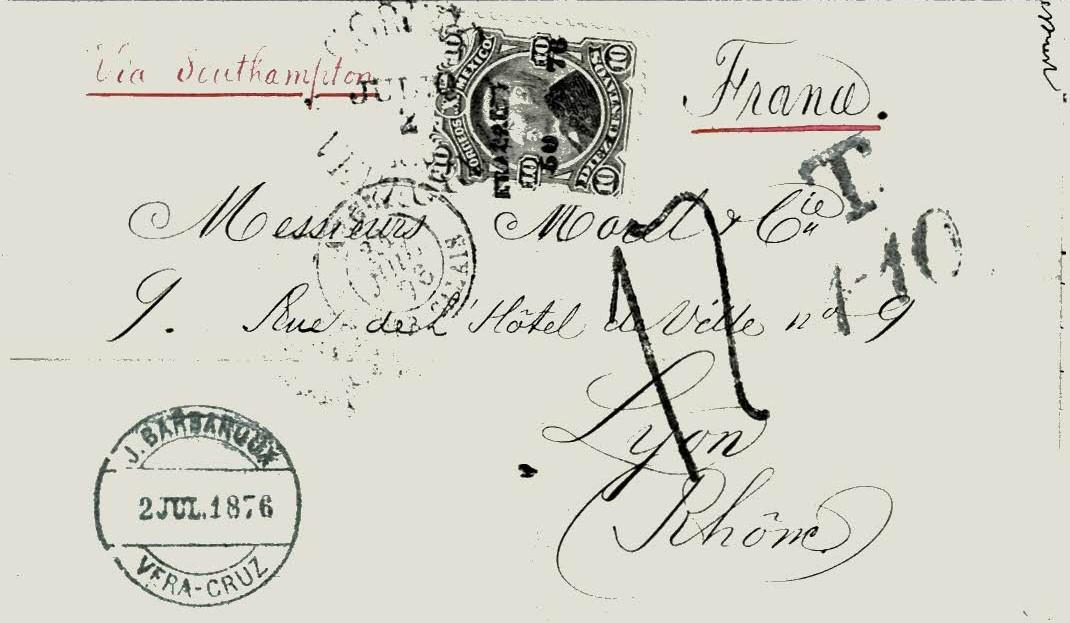 Via Southampton
France
CORREOS MEXICO
10
10
10
50 76
JUL
T
1-10
Messieurs Morel & Cie
9. Rue de L'Hôtel de Ville no 9
Lyon
Rhône
J. BARBAROUX
2 JUL. 1876
VERA-CRUZ